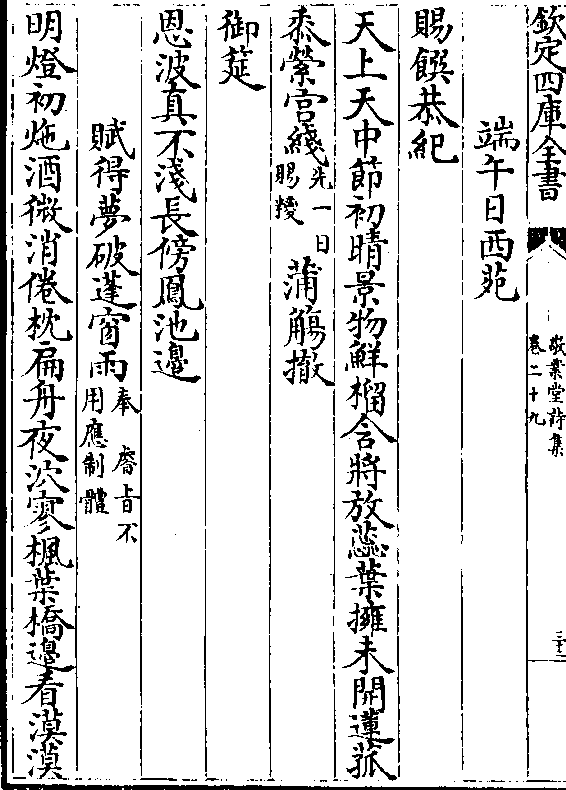 欽定四庫全書
敬業堂詩集
卷二十九
端午日西苑
賜饌恭紀
天上天中節初晴景物鮮榴含將放蕊葉擁未開蓮菰
黍縈宮綫先一日賜糉蒲觴撤
御筵
恩波真不淺長傍鳳池邊
賦得夢破蓬窗雨奉睿㫖不用應制體
明燈初炧酒微消倦枕扁舟夜泬寥楓葉橋邊看漠漠